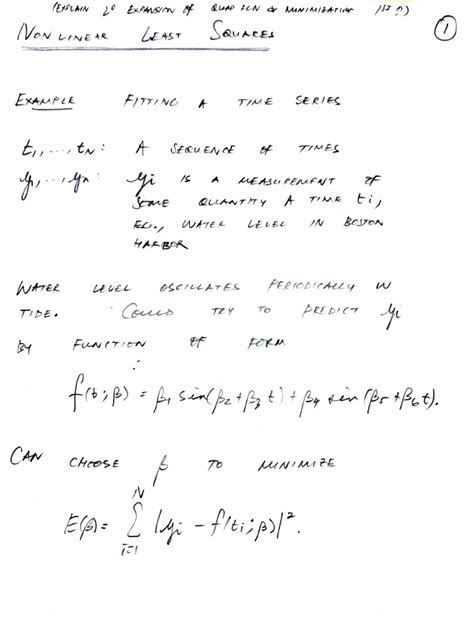 (EXPLAIN 2º EXPANSION OF QUAD FCN & MINIMIZATION 1ST?)
NONLINEAR LEAST SQUARES
1
EXAMPLE FITTING A TIME SERIES
t₁, ..., t_N: A SEQUENCE OF TIMES
y₁, ..., y_N: y_i IS A MEASUREMENT OF
SOME QUANTITY A TIME t_i,
EG., WATER LEVEL IN BOSTON
HARBOR
WATER LEVEL OSCILLATES PERIODICALLY W
TIDE. COULD TRY TO PREDICT y_i
BY FUNCTION OF FORM
:
f(t;β) = β₁ sin(β₂+β₃t) + β₄ sin(β₅+β₆t).
CAN CHOOSE β TO MINIMIZE
E(β) = Σ_{i=1}^{N} |y_i − f(t_i;β)|².